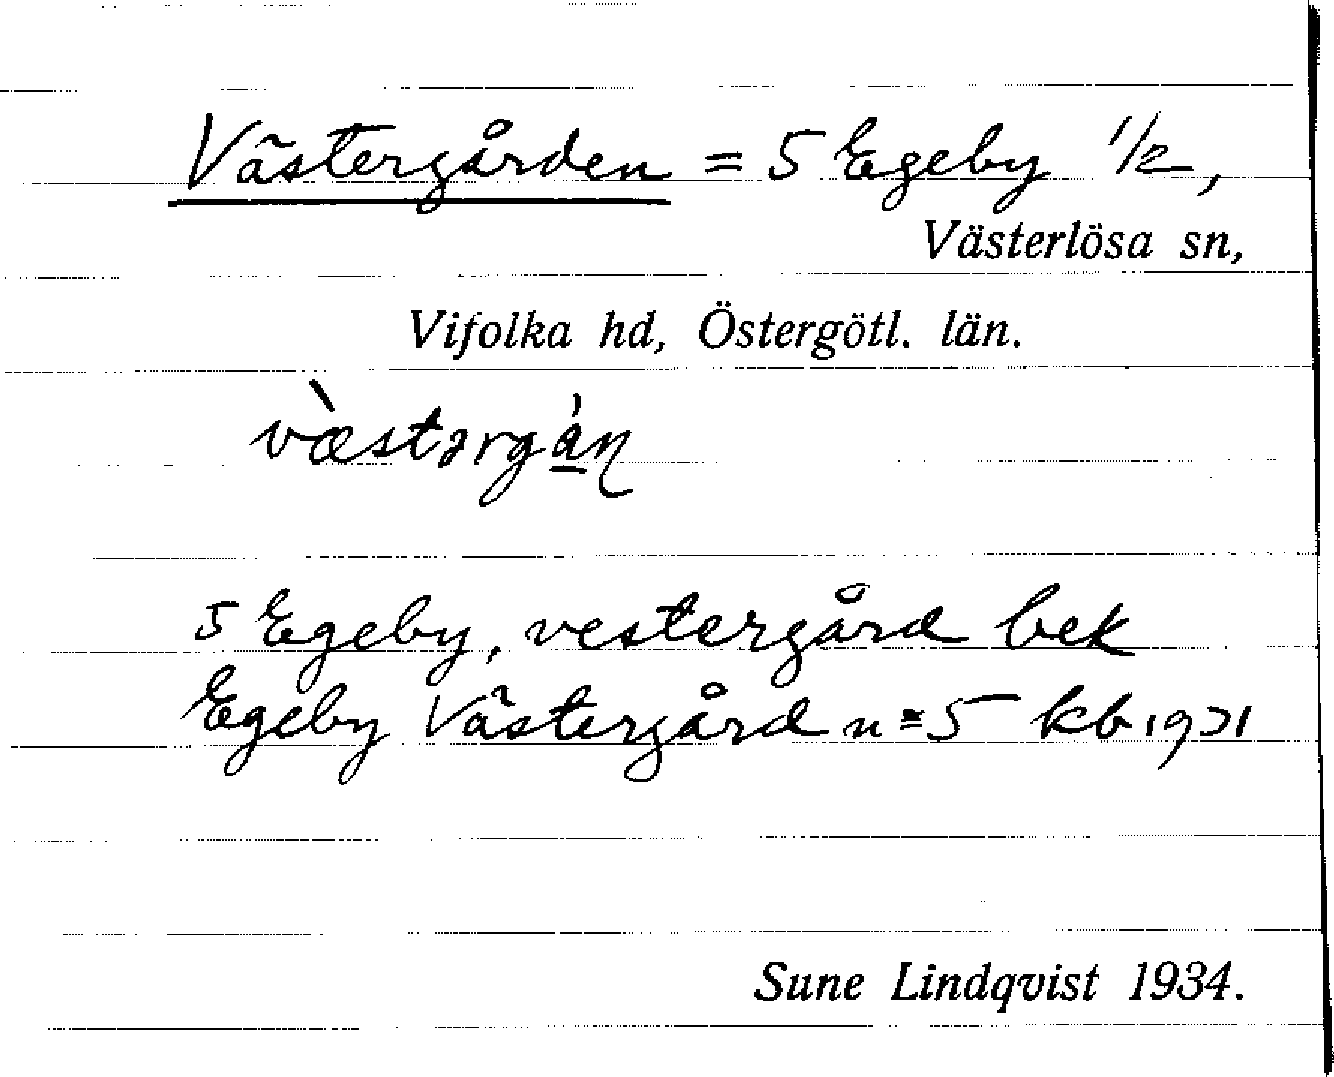 Västergården = 5 Egeby 1/2,
Västerlösa sn,
Vifolka hd, Östergötl. län.
væ̀stərgá̱ɳ
5 Egeby, vestergård bek
Egeby Västergård n = 5 kb 1931
Sune Lindqvist 1934.